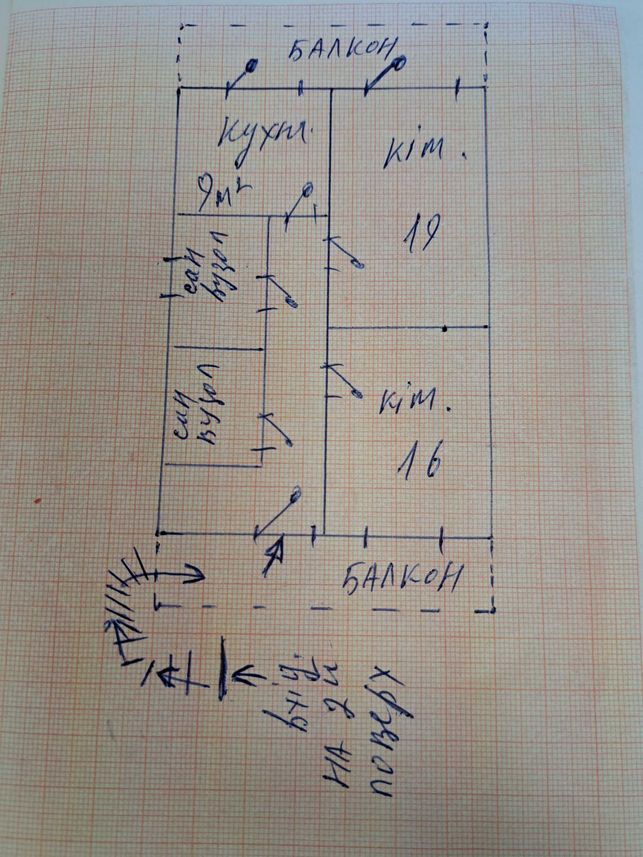 БАЛКОН
кухня.
кім.
9м²
19
сан
вузол
сан
вузол
кім.
16
БАЛКОН
вхід.
на 2й
поверх